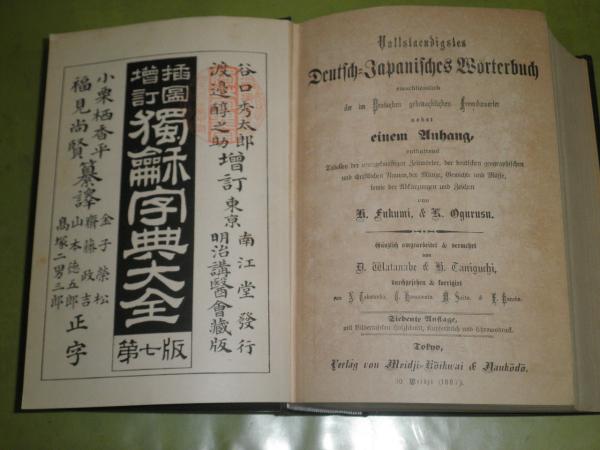 谷口秀太郎
渡邉醇之助
增訂
東京
南江堂發行
明治講醫會藏版
插圖
增訂
獨龢字典大全
第七版
小栗栖香平
福見尚賢
纂譯
金子榮松
齋藤政吉
山本德五郎
高塚二男三郎
正字
Vollstaendigstes
Deutsch=Japanisches Wörterbuch
einschliesslich
der im Deutschen gebräuchlichen Fremdwoerter
nebst
einem Anhang,
enthaltend
Tabellen der unregelmäßigen Zeitwörter, der deutschen geographischen
und christlichen Namen, der Münze, Gewichte und Maße,
sowie der Abkürzungen und Zeichen
von
H. Fukumi, & K. Ogurusu.
Gänzlich umgearbeitet & vermehrt
von
D. Watanabe & H. Taniguchi,
durchgesehen & korrigirt
von
Siebente Auflage,
mit Bildernissen Holzschnitt, Kupferstich und
Tokyo,
Verlag von Meidji-Kôikwai & Nankôdô.
30. Meidji (1897).